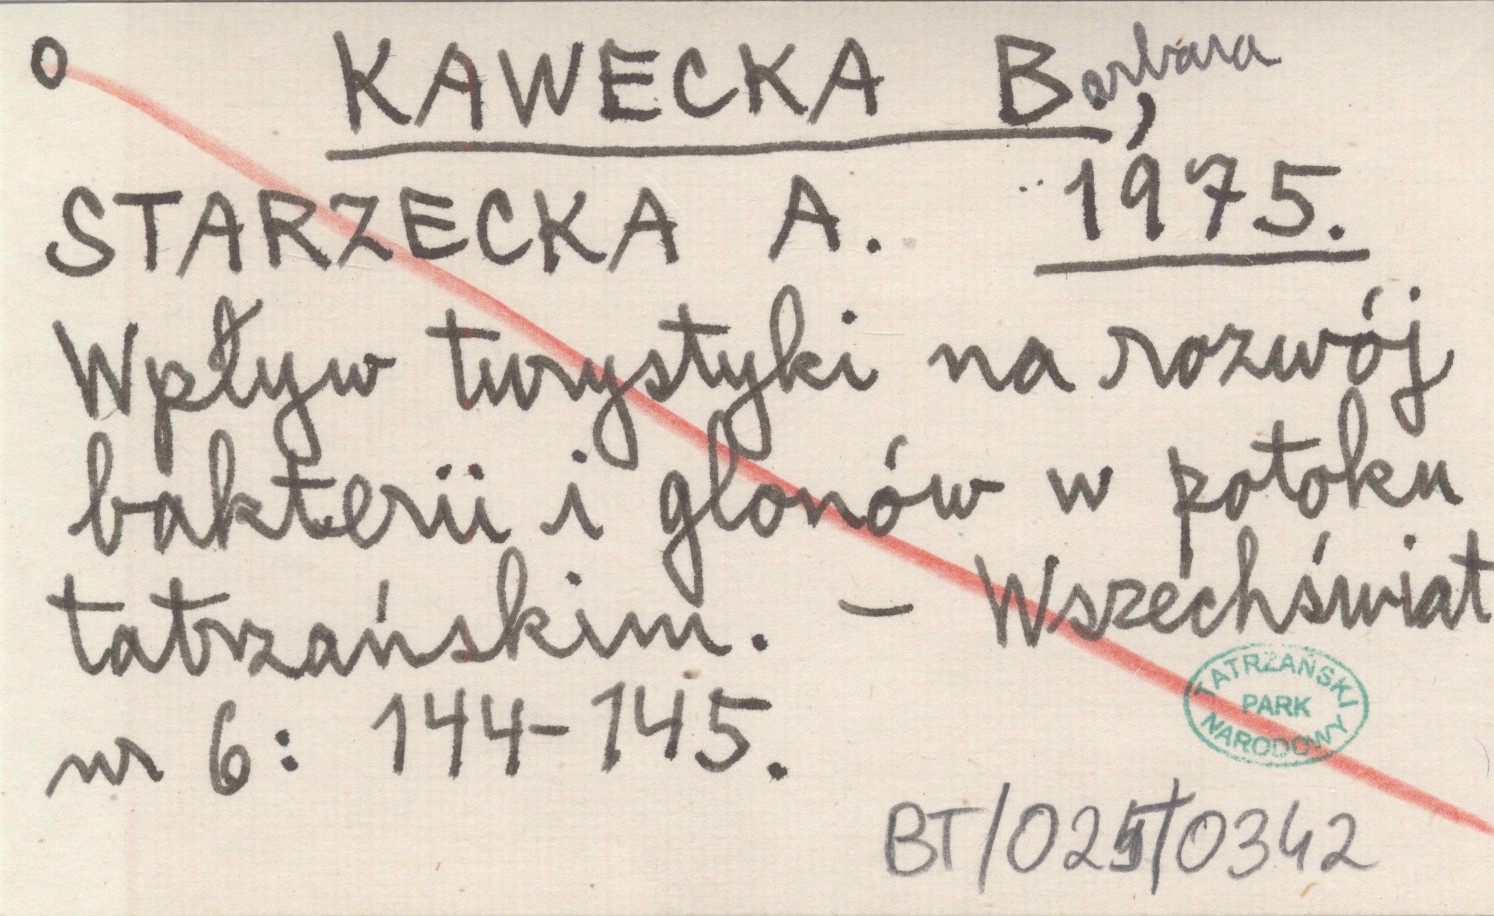 o KAWECKA Barbara,
STARZECKA A. 1975.
Wpływ turystyki na rozwój
bakterii i glonów w potoku
tatrzańskim. — Wszechświat
nr 6: 144-145.
TATRZAŃSKI
PARK
NARODOWY
BT/025/0342